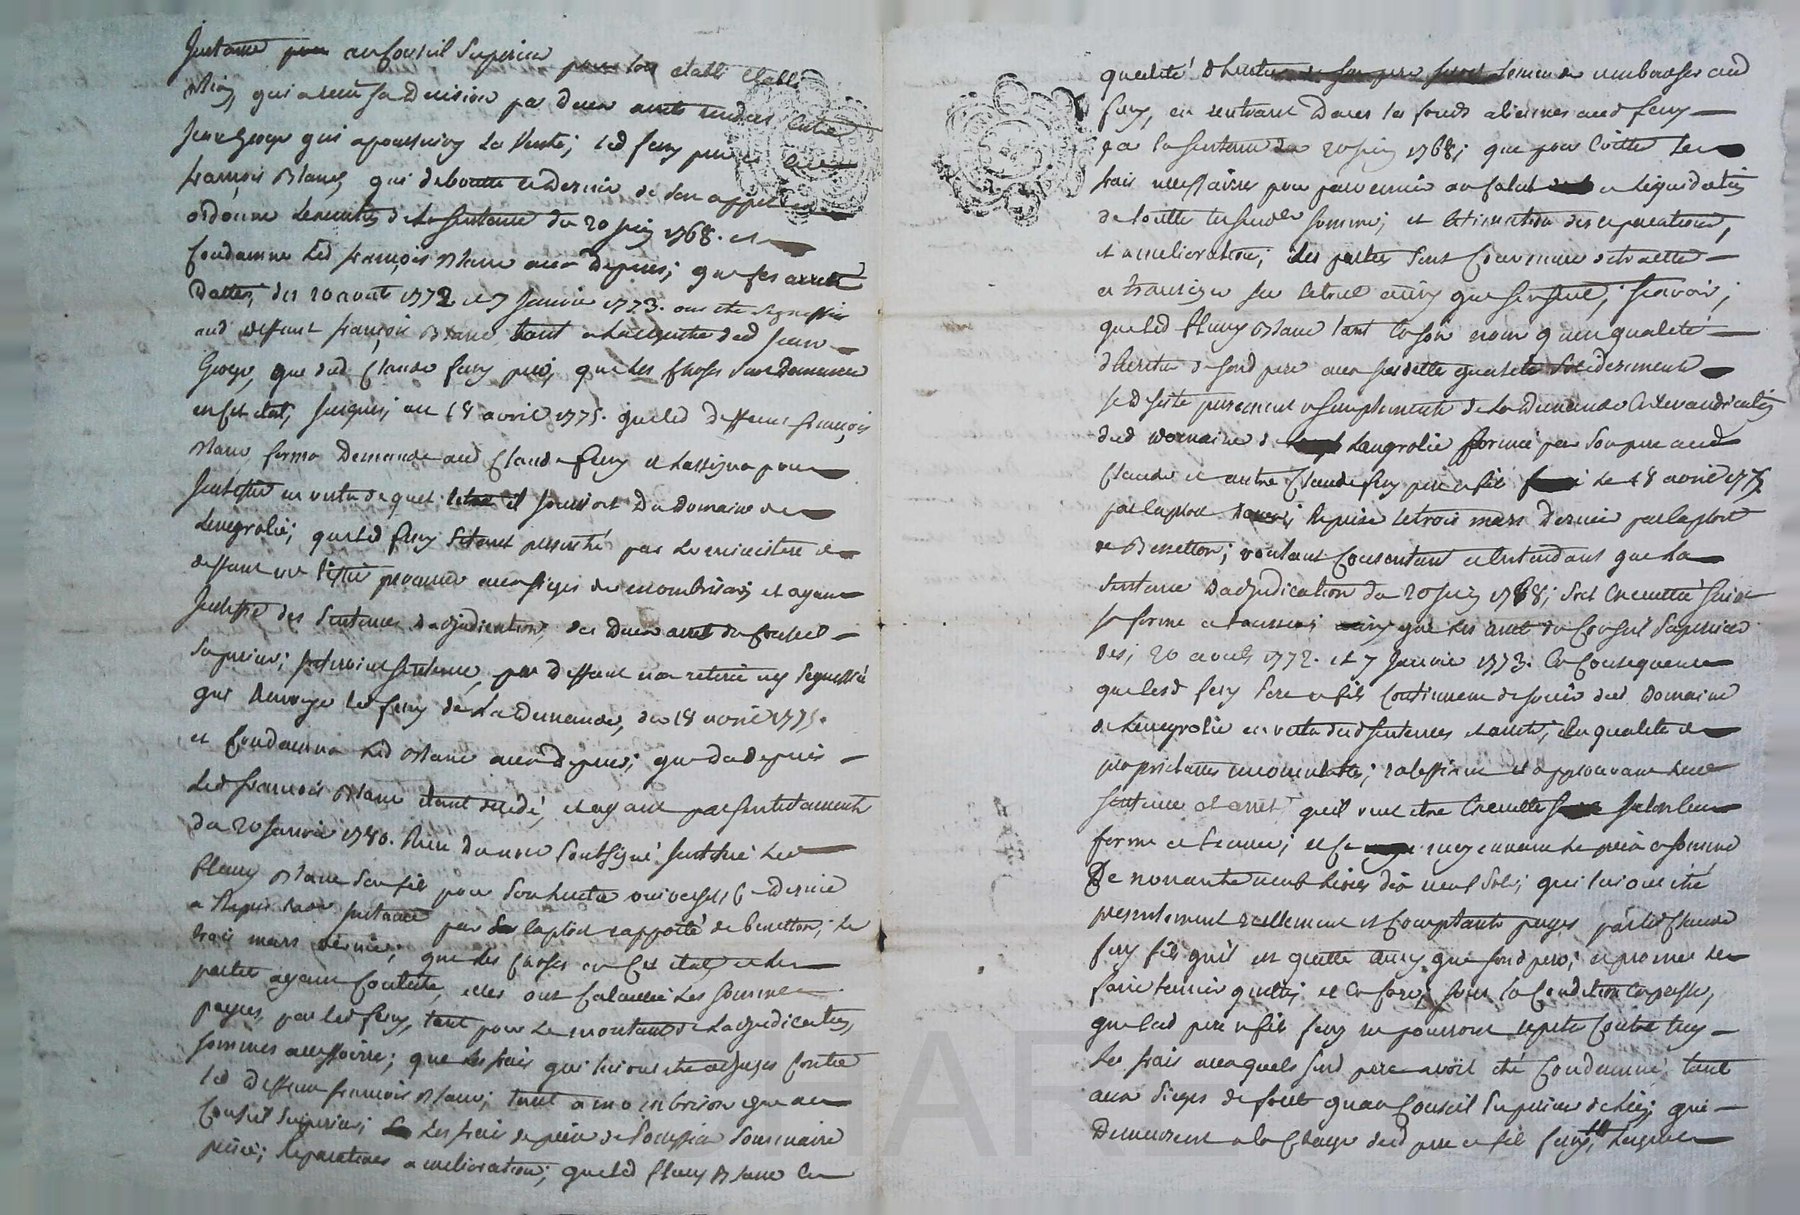 Instance au Conseil Superieur pour lors etabli
qui a reçu sa Decision par deux arrets rendus entre
Jean George qui a poursuivy La Vente; led fery pere et
françois Blanc, qui deboutte ce Dernier de son appel
ordonne Lexecution de La sentence du 20 juin 1768. et
Condamne Led françois Blanc aux Depens; que ses arrets
Dattes, des 20 aout 1772 et 7 Janvier 1773. ont ete signiffiés
aud deffunt françois Blanc tant a La requette dud Jean
George, que dud Claude fery pere, que Les choses sont demeurées
en cet etat, jusques au 18 avril 1775. que led deffunt françois
Blanc forma Demande aud Claude fery et Lassigna pour
justifier en vertu de quel titre il jouissoit Du domaine de
Lenegrolie; que led fery setant presenté par Le ministere de
deffunt procureur aux sieges de montbrison et ayant
justiffié des sentences Dadjudication, des deux arrets du Conseil
Superieur; intervint sentence, par deffaut non retiré ny signiffié
qui Renvoye Les fery de La Demande, du 18 avril 1775.
et Condamna Led Blanc aux Depens; que du depuis
Led françois Blanc etant decedé, et ayant par son testament
du 20 Janvier 1780. Reçu du not. soussigné institué Led
fleury Blanc son fils pour son heritier universel, Ce Dernier
a Repris Lad instance par Lexploit rapporté de benetton, le
trois mars dernier; que Les Choses en Cet etat, et Les
parties ayant Contesté, elles ont Calculé Les sommes
payées par led fery, tant pour Le montant de Ladjudication,
sommes accessoires; que Les frais qui lui ont ete adjugés Contre
led deffunt françois Blanc; tant a montbrison que au
Conseil Superieur; Les frais de prise de Possession sommaire
prise; Reparations amelioration; que led fleury Blanc En
qualité dheritier seroit tenu de rembourser aud
fery, en rentrant Dans les fonds alienés aud fery
par la sentence du 20 juin 1768; que pour eviter Les
frais necessaires pour parvenir au Calcul et Liquidation
de toutte les sommes; et Estimation des reparations,
et amelioration; les parties sont Convenues de traitter
et transiger sur Le tout ainsy que sensuit, scavoir;
que led fleury Blanc tant en son nom quen qualité
dheritier de sond pere aux susdittes qualités solidairement
se desiste purement et simplement de La Demande En revandication
dud domaine de Lenegrolie formée par son pere aud
Claude et autre Claude fery pere et fils Le 18 avril 1775
par Exploit Reprise Le trois mars Dernier par Exploit
de Benetton; voulant Consentant et entendant que La
sentence Dadjudication du 20 juin 1768, soit Executée suivant
sa forme et teneur; ainsy que Les arrets du Conseil Superieur
des, 20 aout 1772. et 7 Janvier 1773. En Consequence
que lesd fery Pere et fils Continuent de jouir dud Domaine
de Lenegrolie en vertu desd sentences et arrets, En qualité de
proprietaires incommutables; ratiffiant et approuvant Lesd
sentence et arrets quil veut etre Executtés selon Leur
forme et teneur; et Ce moyennant Le prix et somme
De nonante neuf livres dix neuf sols; qui lui ont eté
presentement reellement et Comptant payés par led Claude
fery fils quil en quitte ainsy que sond pere; et promet Les
faire tenir quittes et Ce fait, sous la Condition expresse,
que lesd pere et fils fery ne pourront repeter Contre luy
Les frais auxquels sond pere avoit eté Condamné tant
aux sieges de forets quau Conseil Superieur de Lion; qui
Demeurent a la Charge desd pere et fils fery,